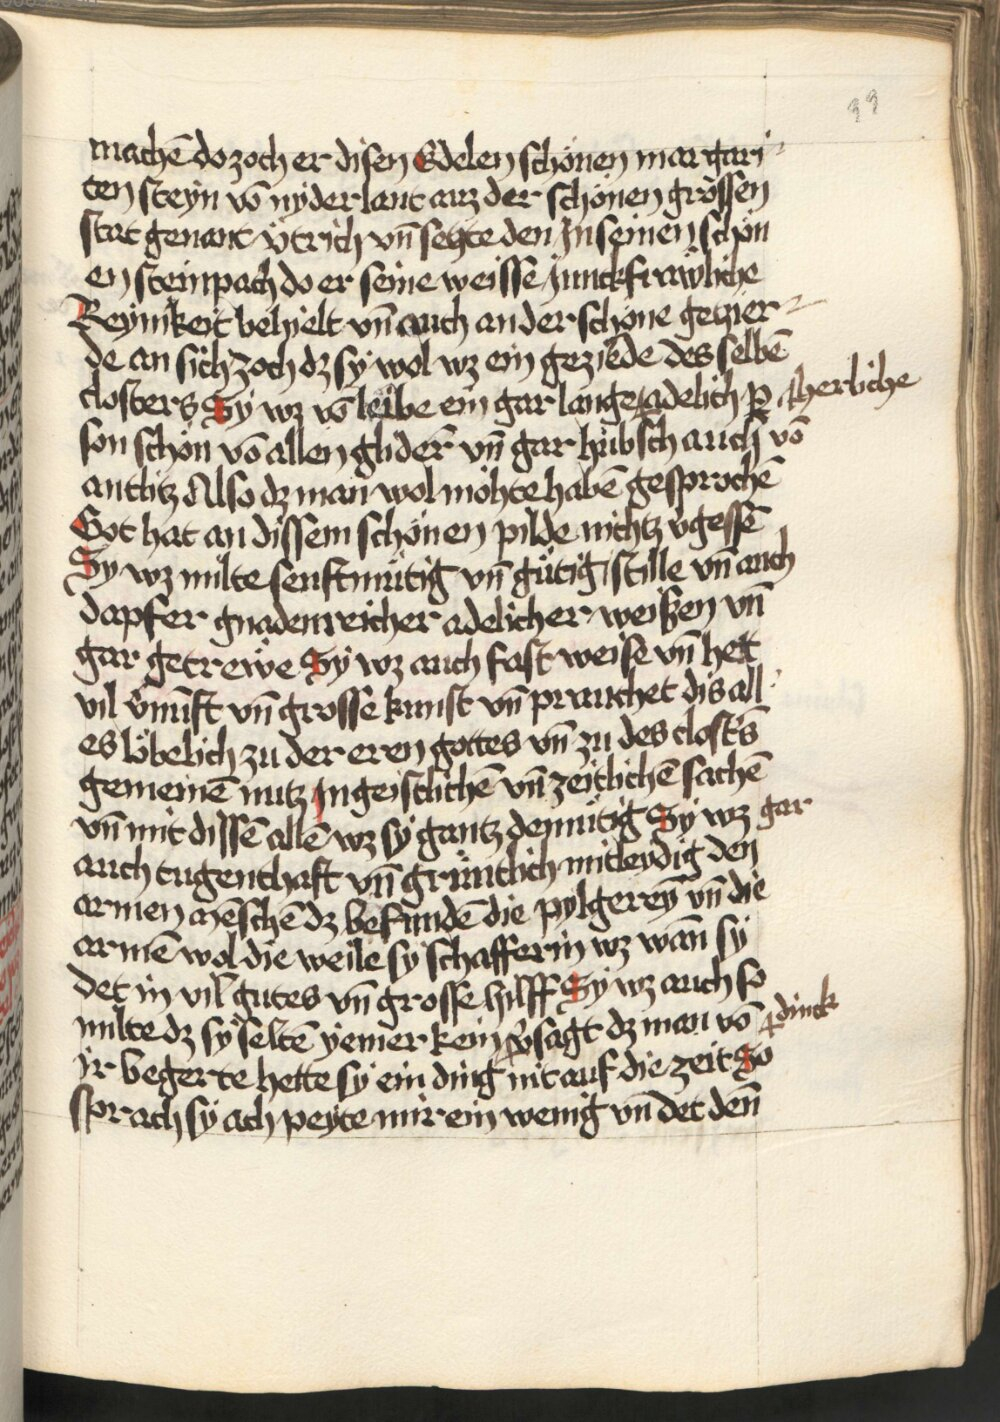 99
machē do zoch er disen Edelen schönen margari
ten steyn vō nyderlant auz der schönen grössen
stat genant vtrich vn̄ seczte den In seinen schön
en steinpach do er seine weisse Junckfrawliche
Reynikeit behielt vn̄ auch ander schöne gezier
de an sich zoch dz sy wol wz ein geziede des selbē
closters Sy wz vō leibe ein gar lange adelich ꝑ herliche
son schön vō allen glider̄ vn̄ gar hübsch auch vō
antlitz Also dz man wol möhte habē gesprochē
Got hat an dissem schönen pilde nichtz v̄gessē
Sy wz milte senftmütig vn̄ gütig stille vn̄ auch
dapfer gnadenreicher adelicher weissen vn̄
gar getrewe Sy wz auch fast weise vn̄ hett
vil v̄nūft vn̄ grosse kunst vn̄ prauchet dis all
es löbelich zu der eren gottes vn̄ zu des clost's
gemeinē nutz In geistlichē vn̄ zeitlichē sachē
vn̄ mit dissē allē wz sy gantz demütig Sy wz gar
auch tugenthaft vn̄ grüntlich mitleydig den
armen mēschē dz befundē die pylgerey̅ vn̄ die
armē wol die weile sy schafferin wz wan̄ sy
det in vil gutes vn̄ grosse hilff Sy wz auch so
milte dz sy seltē yemer kein v̄sagt dz man vō dinck
ir begerte hette sy ein ding nit auf die zeit So
sprach sy ach peyte mir ein wenig vn̄ det den̄